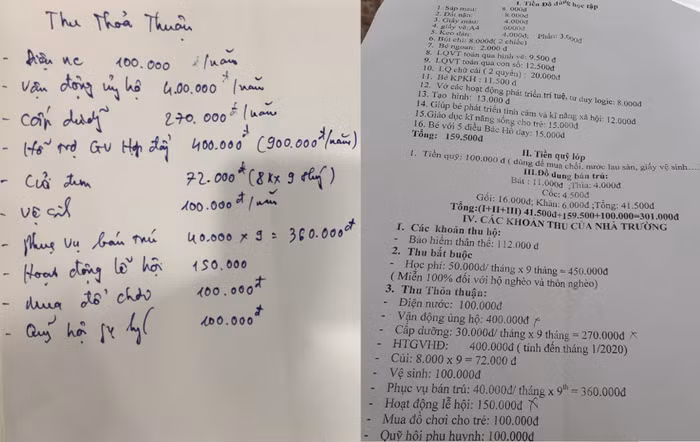 Thu Thoả Thuân
- Điện nc 100.000 đ/năm
- Vận động ủng hộ 400.000đ/năm
- Cấp dưỡng 270.000đ/năm
- Hỗ trợ GV Hợp đồng 400.000đ (900.000đ/năm)
- Củi đun 72.000đ (8k x 9 tháng)
- Vệ sinh 100.000đ/năm
- Phục vụ bán trú 40.000 x 9 = 360.000đ
- Hoạt động lễ hội 150.000
- Mua đồ chơi 100.000đ
- Quỹ hội 100.000đ
I. Tiền Đồ dùng học tập
1. Sáp màu: 8.000đ
2. Đất nặn: 8.000đ
3. Giấy màu: 4.000đ
4. giấy vẽ A4 6000đ
5. Keo dán: 4.000đ; Phấn: 3.000đ
6. Bút chì: 8.000đ( 2 chiếc)
7. Bé ngoan: 2.000 đ
8. LQVT toán qua hình vẽ: 9.500 đ
9. LQVT toán qua con số: 12.500đ
10. LQ chữ cái ( 2 quyển) : 20.000đ
11. Bé KPKH : 11.500 đ
12. Vở các hoạt động phát triển trí tuệ, tư duy logic: 8.000đ
13. Tạo hình: 13.000 đ
14. Giúp bé phát triển tình cảm và kĩ năng xã hội: 12.000đ
15.Giáo dục kĩ năng sống cho trẻ: 15.000đ
16. Bé với 5 điều Bác Hồ dạy: 15.000đ
Tổng: 159.500đ
II. Tiền quỹ lớp
1. Tiền quỹ: 100.000 đ ( dùng để mua chổi, nước lau sàn, giấy vệ sinh....
III.Đồ dung bán trú:
Bát : 11.000đ ;Thìa: 4.000đ
Cốc: 4.500đ
Gối: 16.000đ; Khăn: 6.000đ ;Tổng: 41.500đ
Tổng:(I+II+III) 41.500đ+159.500+100.000=301.000đ
IV. CÁC KHOẢN THU CỦA NHÀ TRƯỜNG
1. Các khoản thu hộ:
- Bảo hiểm thân thể: 112.000 đ
2. Thu bắt buộc
- Học phí: 50.000đ/ tháng x 9 tháng = 450.000đ
( Miễn 100% đối với hộ nghèo và thôn nghèo)
3. Thu Thỏa thuận:
- Điện nước: 100.000đ
- Vận động ủng hộ: 400.000đ
- Cấp dưỡng: 30.000đ/ tháng x 9 tháng = 270.000đ
- HTGVHĐ: 400.000đ ( tính đến tháng 1/2020)
- Củi: 8.000 x 9 = 72.000 đ
- Vệ sinh: 100.000đ
- Phục vụ bán trú: 40.000đ/ tháng x 9th = 360.000đ
- Hoạt động lễ hội: 150.000đ
- Mua đồ chơi cho trẻ: 100.000đ
- Quỹ hội phụ huynh: 100.000đ